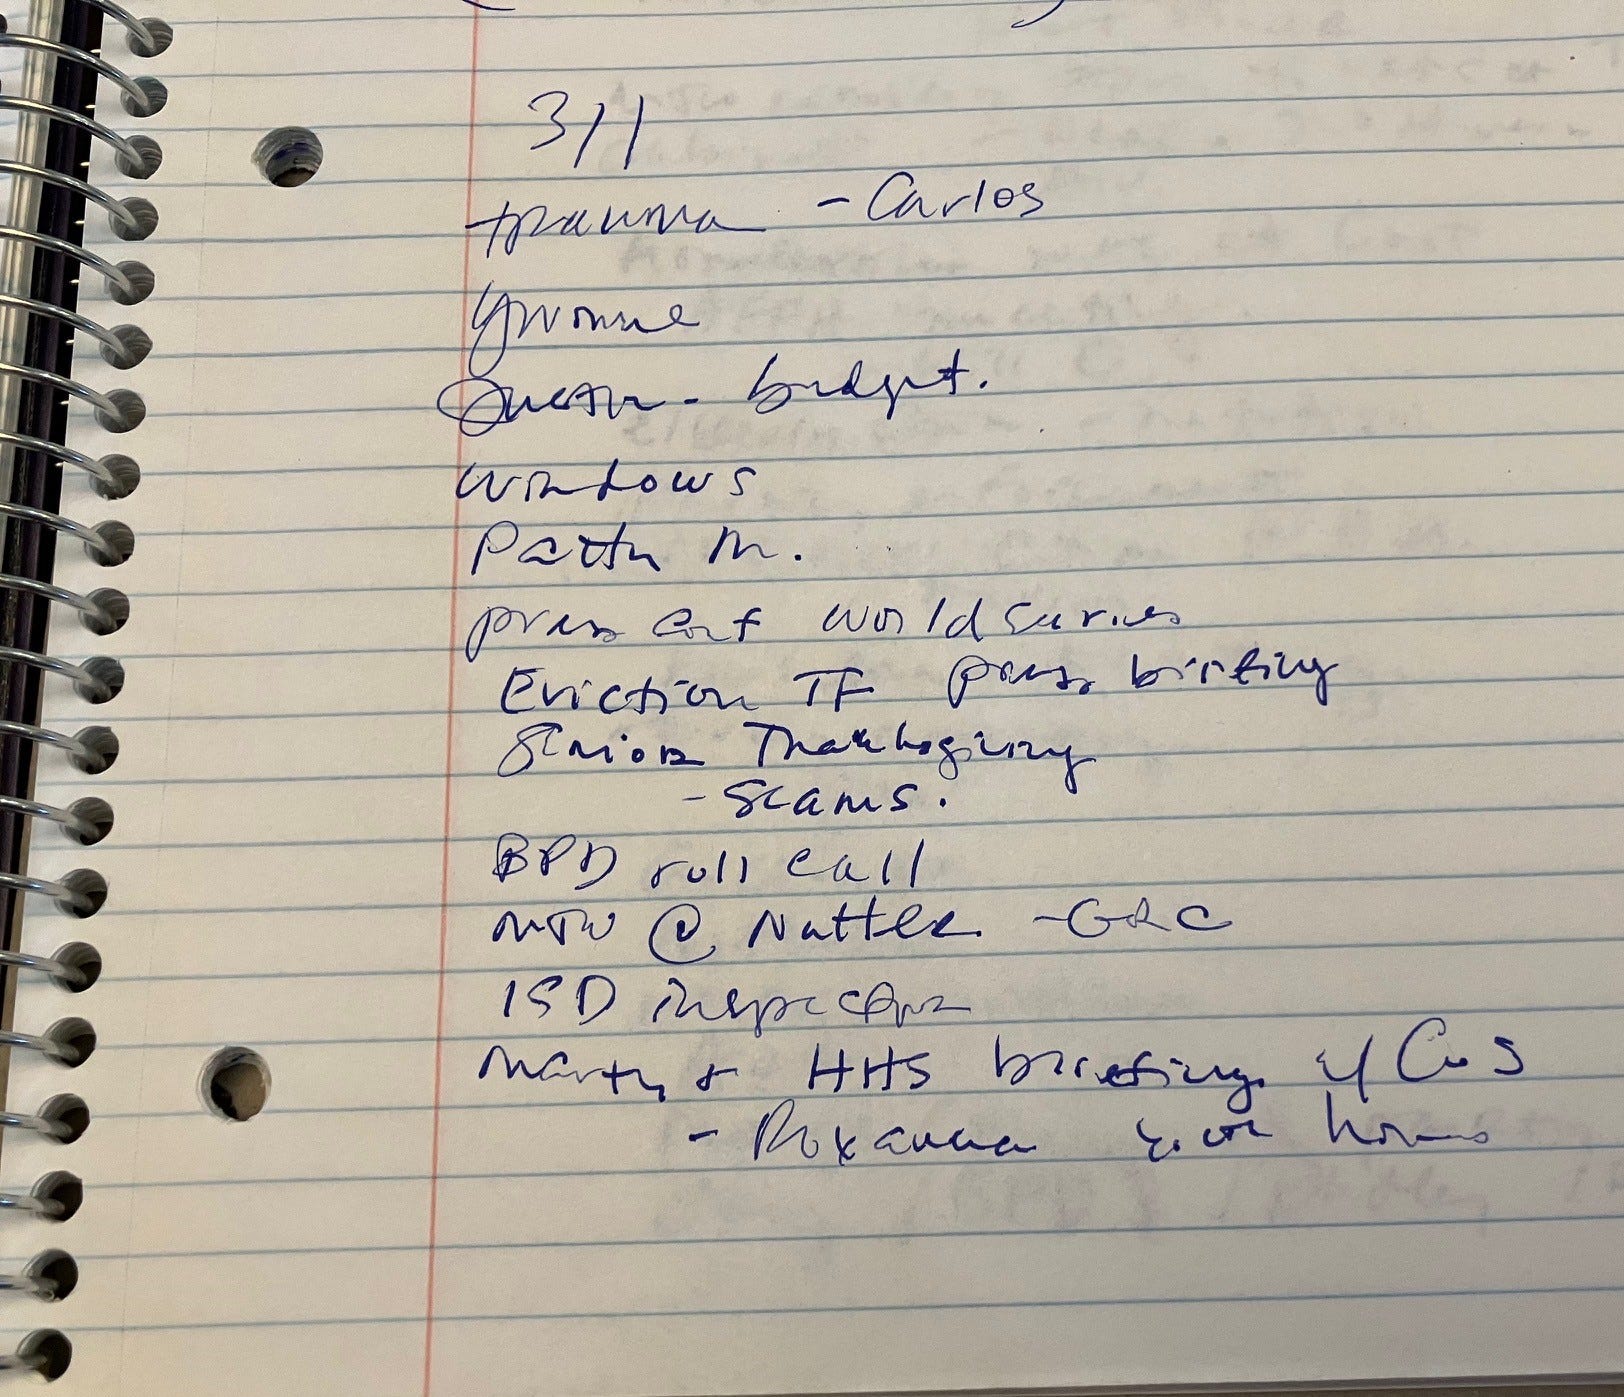 311
trauma - Carlos
Yvonne
- budget.
windows
Patty M.
press conf world series
Eviction TF press briefing
Seniors Thanksgiving
- Scams.
BPD roll call
MTW @ Nutter -GRC
ISD inspector
Marty & HHS briefing w/ CoS
- Roxanna